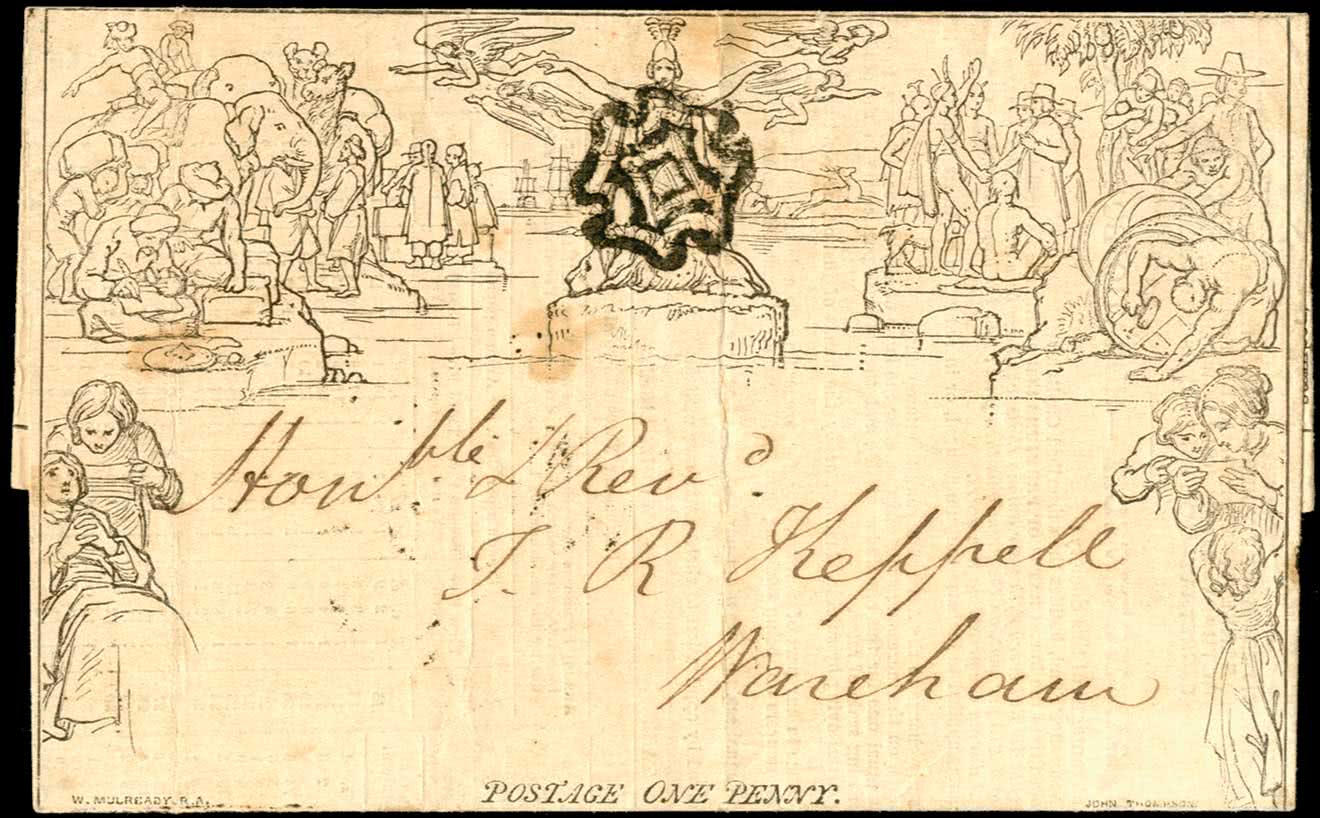 Honble & Revd.
T. R Keppell
Wareham
POSTAGE ONE PENNY.
W. MULREADY. R.A.
JOHN THOMPSON